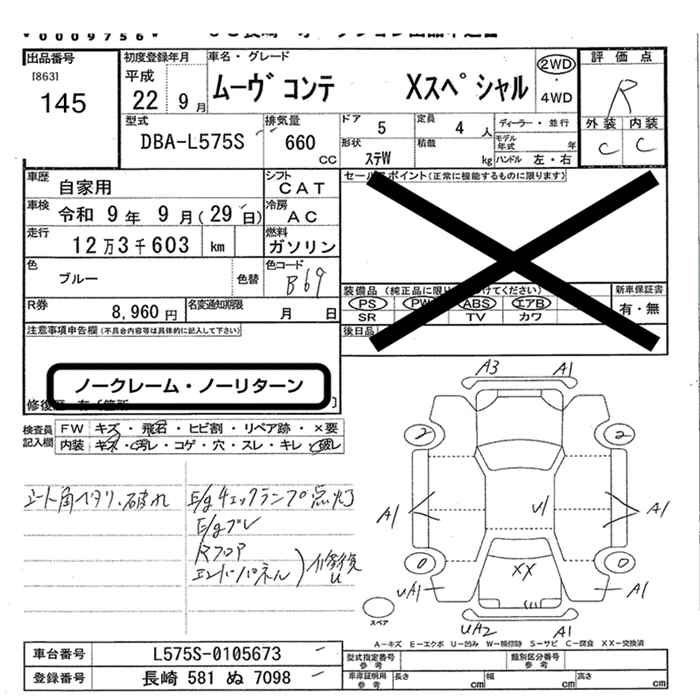 0009756
出品番号
[863]
145
初度登録年月
平成
22 9月
車名・グレード
ムーヴコンテ Xスペシャル
2WD
・
4WD
評価点
R
外装 内装
C C
型式
DBA-L575S
排気量
660
CC
ドア
5
定員
4 人
ディーラー・並行
モデル年式 年
形状
ステW
積載
kg
ハンドル 左・右
車歴
自家用
シフト
CAT
車検
令和 9年 9月(29日)
冷房
AC
走行
12万3千603 km
燃料
ガソリン
色
ブルー
色替
色コード
B69
R券
8,960円
名変通知期限
月 日
セールスポイント(正常に機能するものに限ります)
装備品
PS PW ABS エアB
SR TV カワ
後日品
新車保証書
有・無
注意事項申告欄(不具合内容等は具体的に記入して下さい)
ノークレーム・ノーリターン
検査員
記入欄
FW キズ・飛石・ヒビ割・リペア跡・×要
内装 キズ・汚レ・コゲ・穴・スレ・キレ・破レ
シート角ヘタリ、破れ
E/gチェックランプ点灯
E/gブレ
Rフロア
エンドパネル )修復
u
A3 A1
2 2
A1 U1 A1
0 0
UA1 XX A1
UA2 A1
スペア
A－キズ E－エクボ U－凹み W－補修跡 S－サビ C－腐食 XX－交換済
車台番号 L575S-0105673
登録番号 長崎 581 ぬ 7098
型式指定番号
参考
類別区分番号
参考
車庫証明用
参考
長さ cm 幅 cm 高さ cm